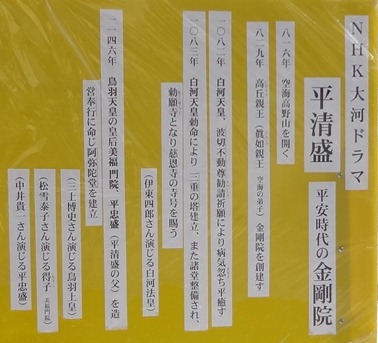 NHK大河ドラマ
平清盛
平安時代の金剛院
八一六年 空海高野山を開く
八二九年 高丘親王(真如親王 空海の弟子)金剛院を創建す
一〇八二年 白河天皇、波切不動尊勧請祈願により病気忽ち平癒す
一〇八三年 白河天皇勅命により三重の塔建立、また諸堂整備され、
勅願寺となり慈恩寺の寺号を賜う
(伊東四郎さん演じる白河法皇)
一一四六年 鳥羽天皇の皇后美福門院、平忠盛(平清盛の父)を造
営奉行に命じ阿弥陀堂を建立
(三上博史さん演じる鳥羽上皇)
(松雪泰子さん演じる得子 美福門院)
(中井貴一さん演じる平忠盛)